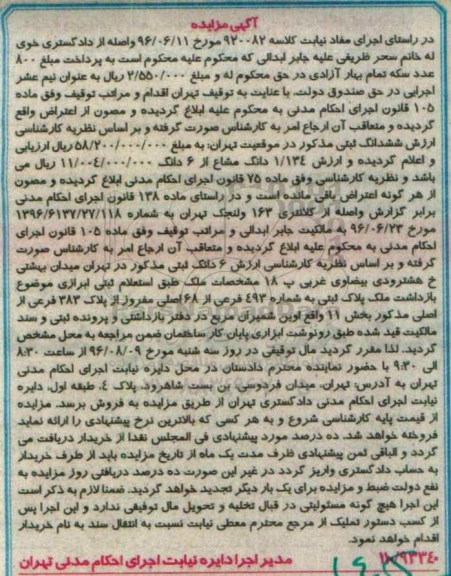 آگهی مزایده
در راستای اجرای مفاد نیابت کلاسه ۹۲۰۰۸۲ مورخ ۹۶/۰۶/۱۱ واصله از دادگستری خوی
له خانم سحر ظریفی علیه جابر ابدالی که محکوم علیه محکوم است به پرداخت مبلغ ۸۰۰
عدد سکه تمام بهار آزادی در حق محکوم له و مبلغ ۲/۵۵۰/۰۰۰ ریال به عنوان نیم عشر
اجرایی در حق صندوق دولت. با عنایت به توقیف تهران اقدام و مراتب توقیف وفق ماده
۱۰۵ قانون اجرای احکام مدنی به محکوم علیه ابلاغ گردیده و مصون از اعتراض واقع
گردیده و متعاقب آن ارجاع امر به کارشناس صورت گرفته و بر اساس نظریه کارشناسی
ارزش ششدانگ ثبتی مذکور در موقعیت تهران: به مبلغ ۵۸/۲۰۰/۰۰۰/۰۰۰ ریال ارزیابی
و اعلام گردیده و ارزش ۱/۱۳۴ دانگ مشاع از ۶ دانگ ۱۱/۰۰۴/۰۰۰/۰۰۰ ریال می
باشد و نظریه کارشناسی وفق ماده ۷۵ قانون اجرای احکام مدنی ابلاغ گردیده و مصون
از هر گونه اعتراض باقی مانده است و در راستای ماده ۱۳۸ قانون اجرای احکام مدنی
برابر گزارش واصله از کلانتری ۱۶۳ ولنجک تهران به شماره ۱۳۹۶/۶۱۳۷/۲۷/۱۱۸
مورخ ۹۶/۰۶/۲۳ به مالکیت جابر ابدالی و مراتب توقیف وفق ماده ۱۰۵ قانون اجرای
احکام مدنی به محکوم علیه ابلاغ گردیده و متعاقب آن ارجاع امر به کارشناس صورت
گرفته و بر اساس نظریه کارشناسی ارزش ۶ دانگ ثبتی مذکور در تهران میدان بهشتی
خ هشترودی بیضاوی غربی پ ۱۸ مشخصات ملک طبق استعلام ثبتی ابرازی موضوع
بازداشت ملک پلاک ثبتی به شماره ۴۹۳ فرعی از ۶۸ اصلی مفروز از پلاک ۳۸۳ فرعی از
اصلی مذکور بخش ۱۱ واقع اوین شمیران مربع در دفتر بازداشتی و پرونده ثبتی و سند
مالکیت قید شده طبق رونوشت ابزاری پایان کار ساختمان ضمن مراجعه به محل مشخص
گردید. لذا مقرر گردید مال توقیفی در روز سه شنبه مورخ ۹۶/۰۸/۰۹ از ساعت ۸:۳۰
الی ۹:۳۰ با حضور نماینده محترم دادستان در محل دایره نیابت اجرای احکام مدنی
تهران به آدرس: تهران، میدان فردوسی، بن بست شاهرود، پلاک ۴، طبقه اول، دایره
نیابت اجرای احکام مدنی دادگستری تهران از طریق مزایده به فروش برسد. مزایده
از قیمت پایه کارشناسی شروع و به هر کسی که بالاترین نرخ پیشنهادی را ارائه نماید
فروخته خواهد شد. ده درصد مورد پیشنهادی فی المجلس نقدا از خریدار دریافت می
گردد و الباقی ثمن پیشنهادی ظرف مدت یک ماه از تاریخ مزایده باید از طرف خریدار
به حساب دادگستری واریز گردد در غیر این صورت ده درصد دریافتی روز مزایده به
نفع دولت ضبط و مزایده برای یک بار دیگر تجدید خواهد گردید. ضمنا لازم به ذکر است
این اجرا هیچ گونه مسئولیتی در قبال تخلیه و تحویل مال توقیفی ندارد و این اجرا پس
از کسب دستور تملیک از مرجع محترم معطی نیابت نسبت به انتقال سند به نام خریدار
اقدام خواهد نمود.
۱۱۰/۹۳۳۴۰ مدیر اجرا دایره نیابت اجرای احکام مدنی تهران